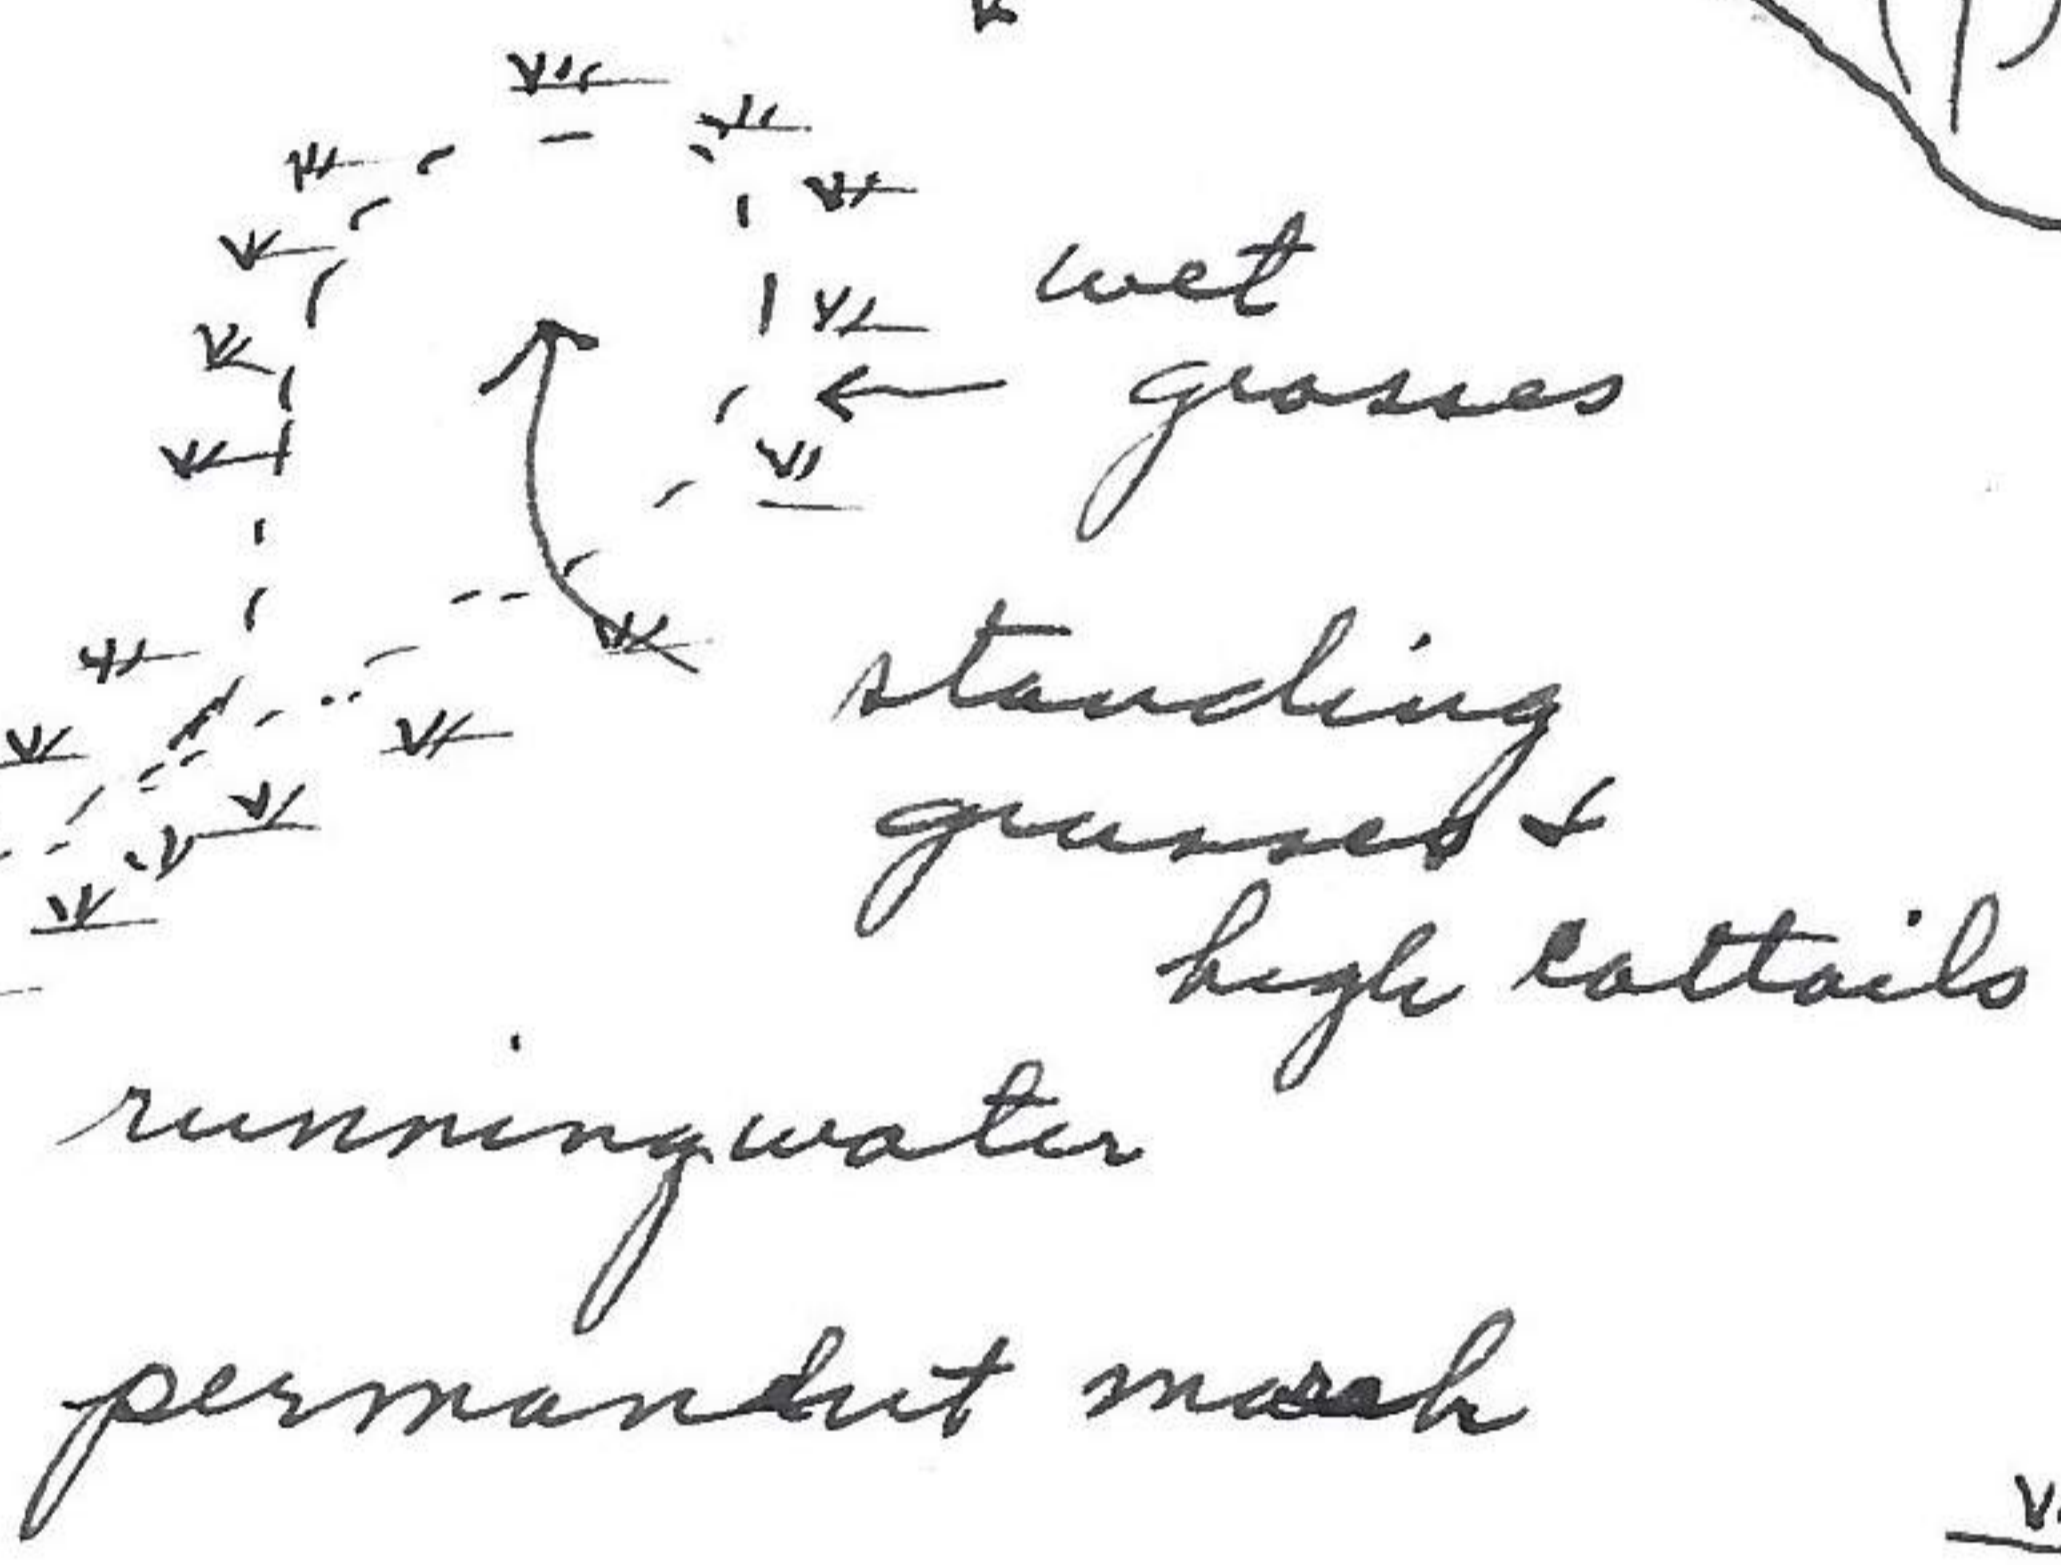 wet
grasses
standing
grasses +
high cattails
running water
permanent marsh